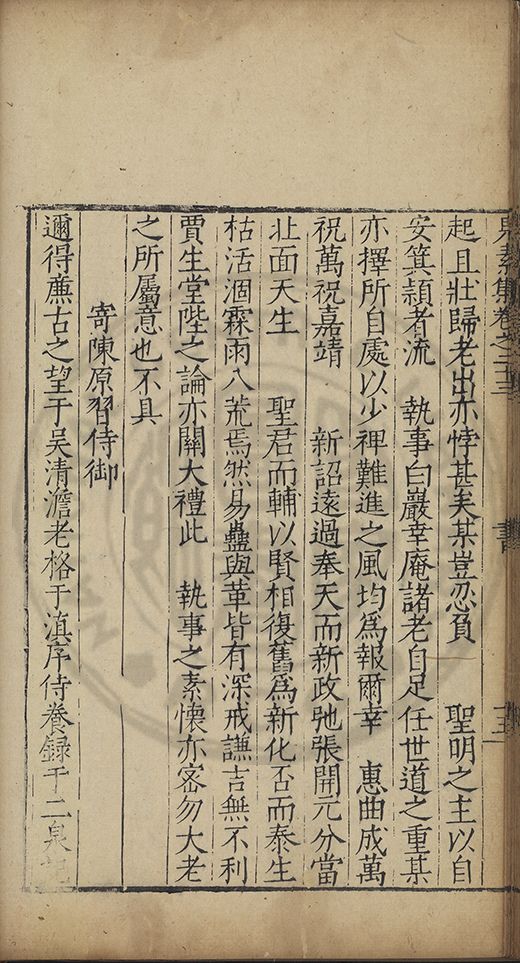 見素集卷之二十三 書 十五
起且壯歸老出亦悖甚矣某豈忍負 聖明之主以自
安箕潁者流 執事白巖幸庵諸老自足任世道之重某
亦擇所自處以少裨難進之風均為報爾幸 惠曲成萬
祝萬祝嘉靖 新詔遠過奉天而新政弛張開元分當
北面天生 聖君而輔以賢相復舊為新化否而泰生
枯活涸霖雨八荒焉然易蠱與革皆有深戒謙吉無不利
賈生堂陛之論亦關大禮此 執事之素懷亦密勿大老
之所屬意也不具
寄陳原習侍御
邇得廉古之望于吳清澹老格于滇序侍養録于二泉